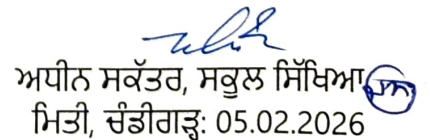 ਅਧੀਨ ਸਕੱਤਰ, ਸਕੂਲ ਸਿੱਖਿਆ
ਮਿਤੀ, ਚੰਡੀਗੜ੍ਹ: 05.02.2026